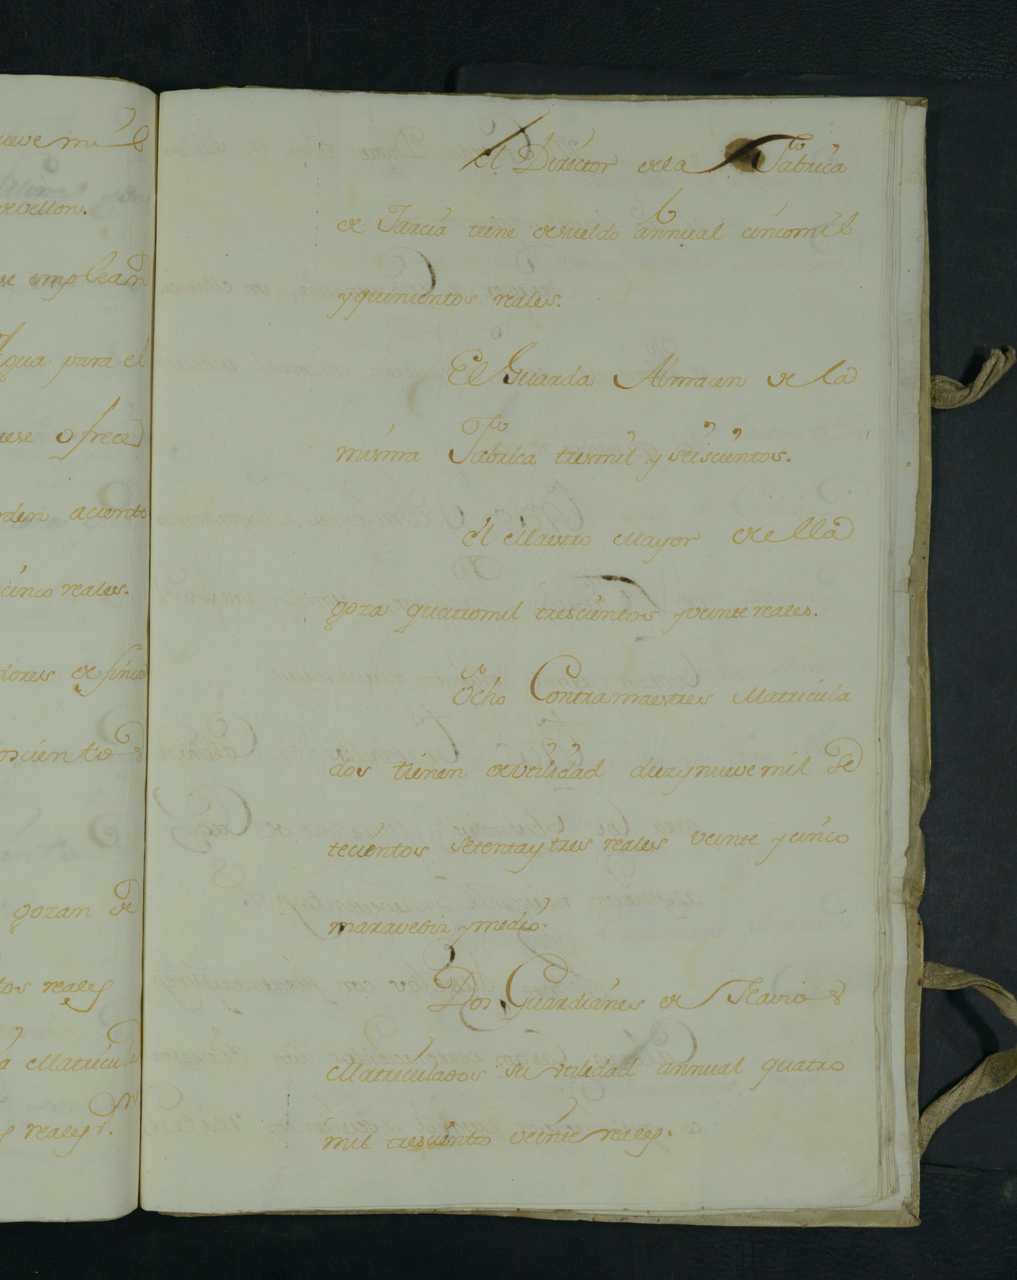 ueve mil
de vellon.
se emplean
gua para el
uese ofrece
rden aciento
cinco reales.
iores de finco
oscientos
gozan de
tos reales
a Matricul
s reales
El Director de la Fabrica
de Jarcia tiene de sueldo annual cincomil
y quinientos reales.
El Guarda Almacen de la
misma Fabrica tresmil y seiscientos.
El Maestro Mayor de ella
goza quatromil trescientos y veinte reales.
Ocho Contramaestres Matricula
dos tienen de utilidad diez y nueve mil de
tecientos setenta y tres reales veinte y cinco
maravediz y medio.
Dos Guardianes de Navios
Matriculados su utilidad annual quatro
mil trescientos veinte reales.